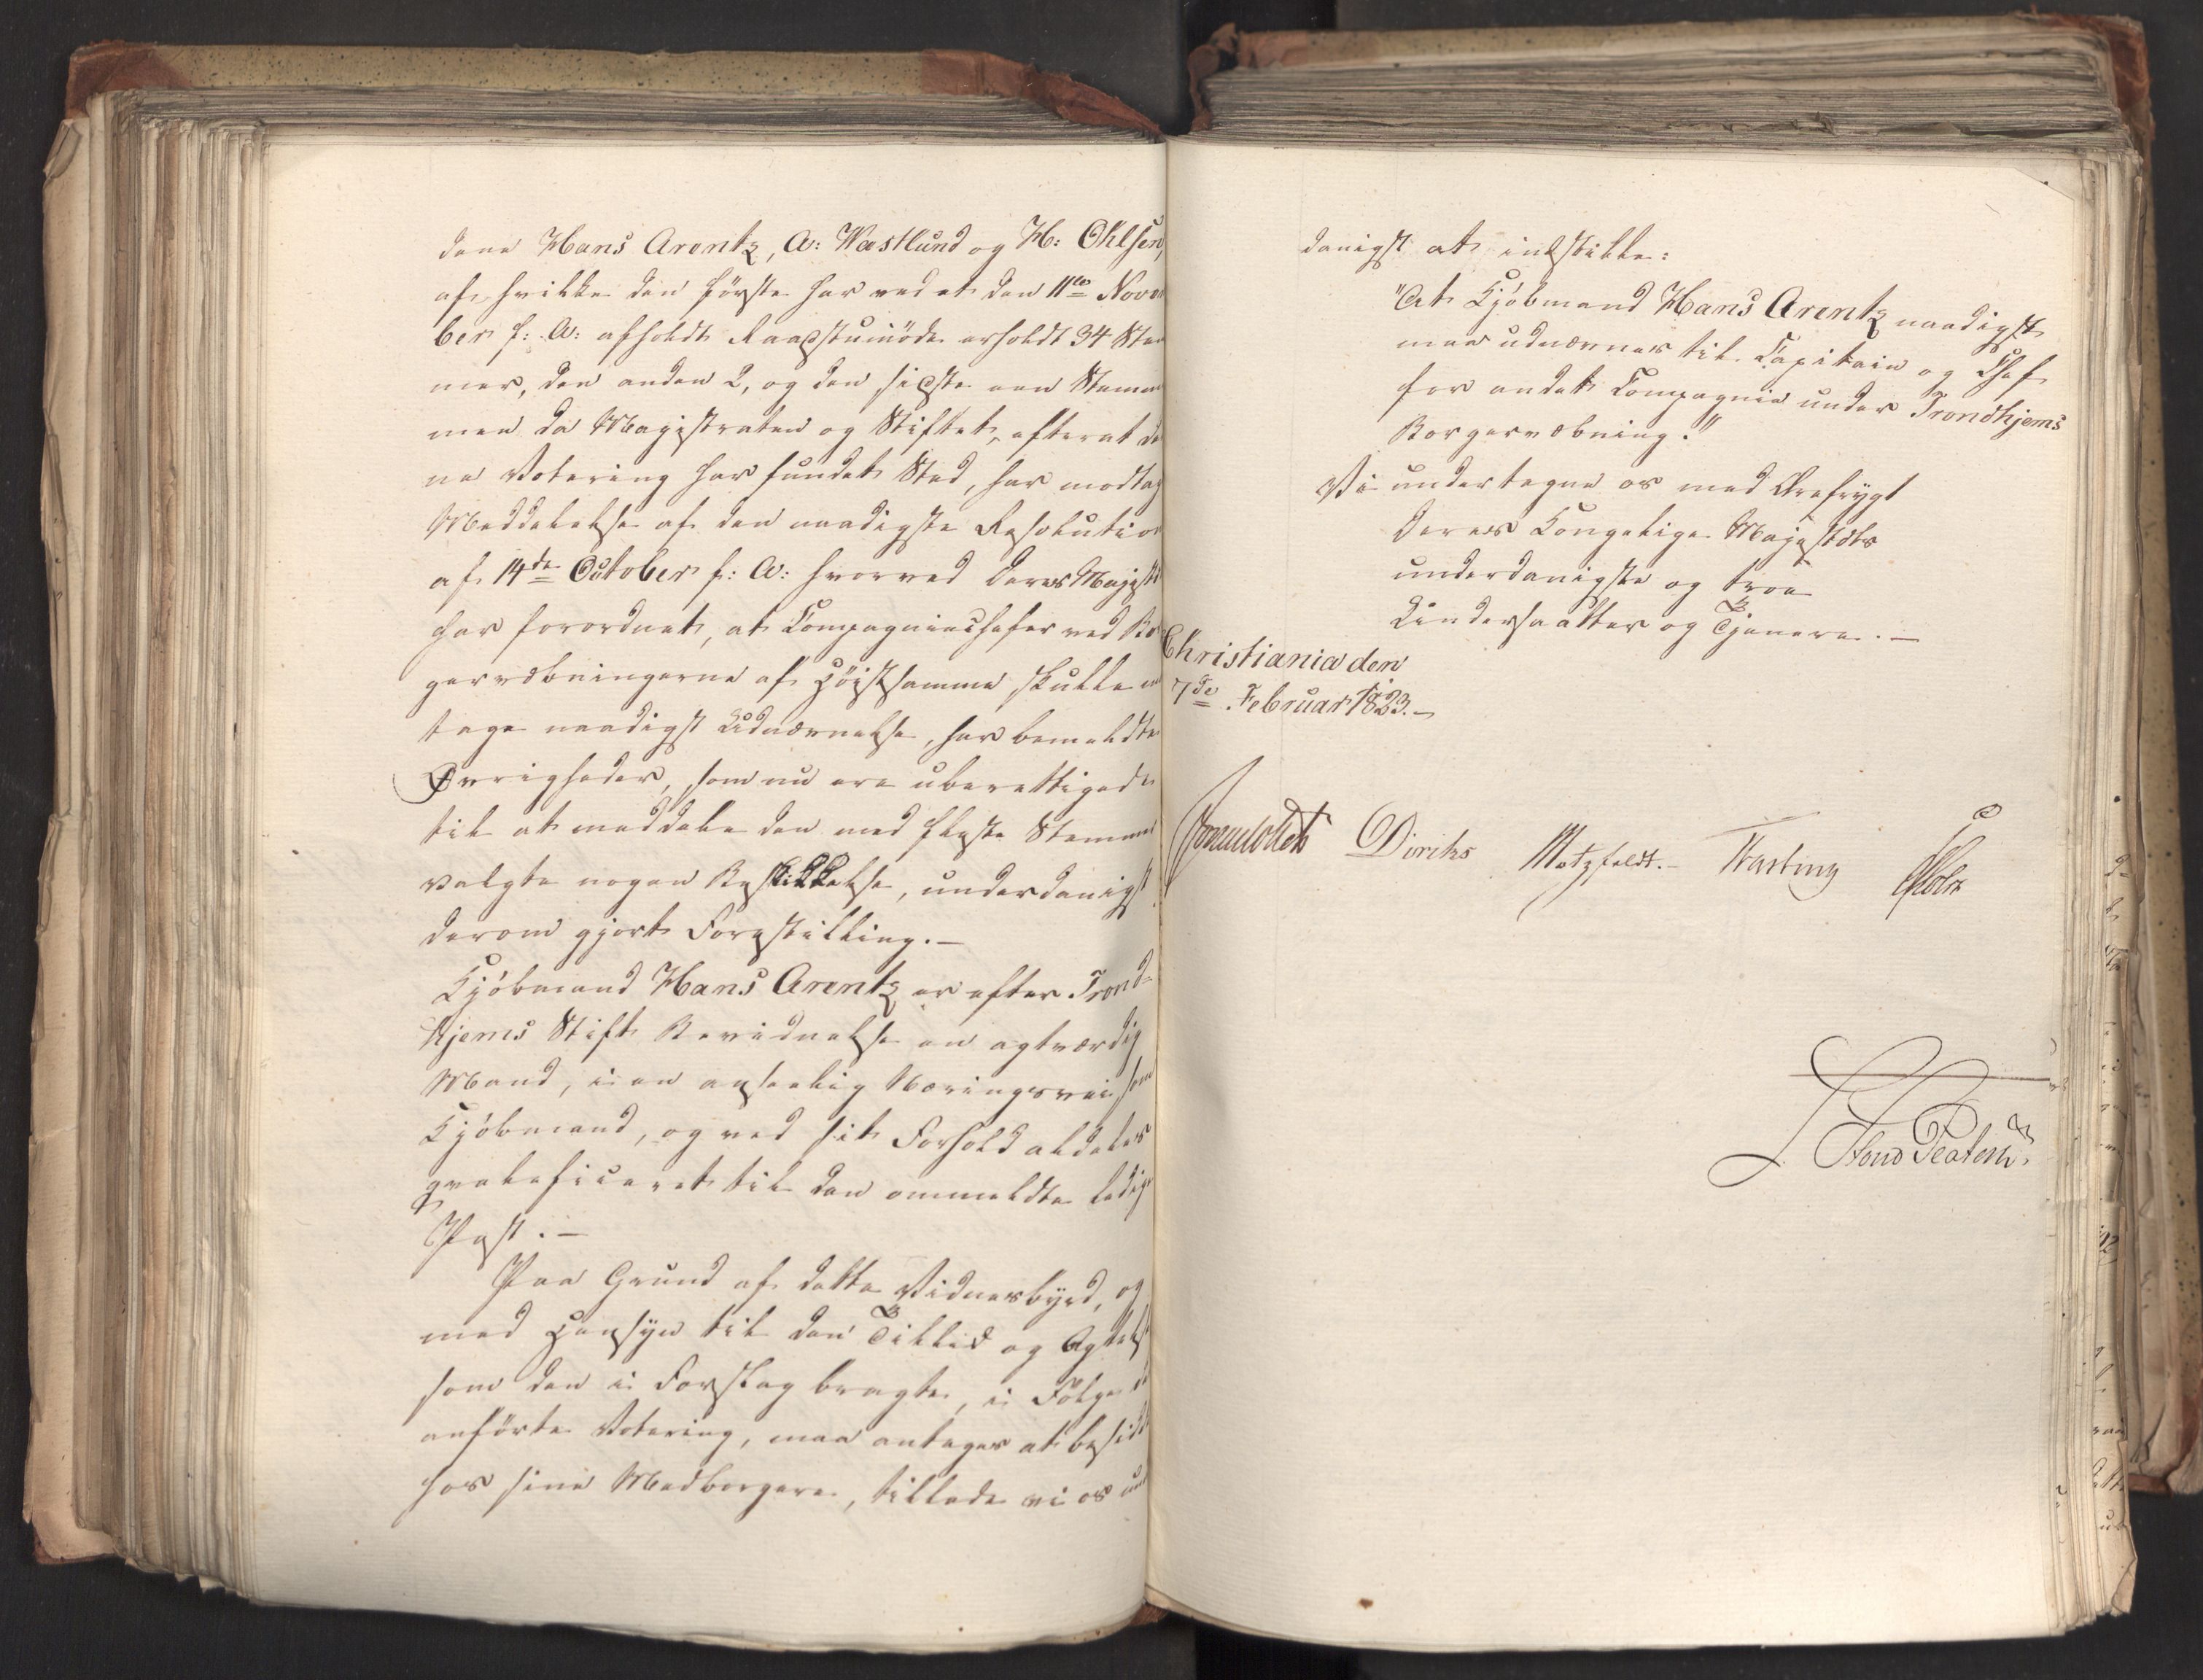 dene Hans Arentz, A: Westlund og H: Ohlsen,
af hvilke den første har ved et den 11te Novem
ber f: A: afholdt Raadstuemøde erholdt 34 Stem
mer, den anden 2, og den sidste een Stemme
men da Magistraten og Stiftet, efterat den
ne Votering har fundet Sted, har modtag
Meddelelse af den naadigste Resolution
af 14de October f: A: hvorved Deres Majestæt
har forordnet, at Compagniechefer ved Bor
gervæbningerne af Høistsamme skulle
tage naadigst Udnævnelse, har bemeldte
Øvrigheder, som nu ere uberettigede
til at meddele den med fleste Stemmer
valgte nogen Beskikkelse, underdanigst
derom gjort Forestilling.—
Kjøbmand Hans Arentz er efter Trond-
hjems Stift Bevidnelse en agtværdig
Mand, i en anseelig Næringsvei som
Kjøbmand, og ved sit Forhold aldeles
qvalificeret til den ommeldte ledige
Post.—
Paa Grund af dette Vidnesbyrd, og
med Hensyn til den Tillid og Agtelse
som den i Forslag bragte, i Følge
anførte Votering, maa antages at besidde
hos sine Medborgere, tillade vi os un
danigst at indstille:
"At Kjøbmand Hans Arentz naadigst
maa udnævnes til Capitain og Chef
for andet Compagnie under Trondhjems
Borgervæbning."
Vi undertegne os med Ærefrygt
Deres Kongelige Majestæts
underdanigste og troe
Undersaatter og Tjenere.—
Christiania den
7de Februar 1823.—
Diriks Motzfeldt.— Fasting Holst